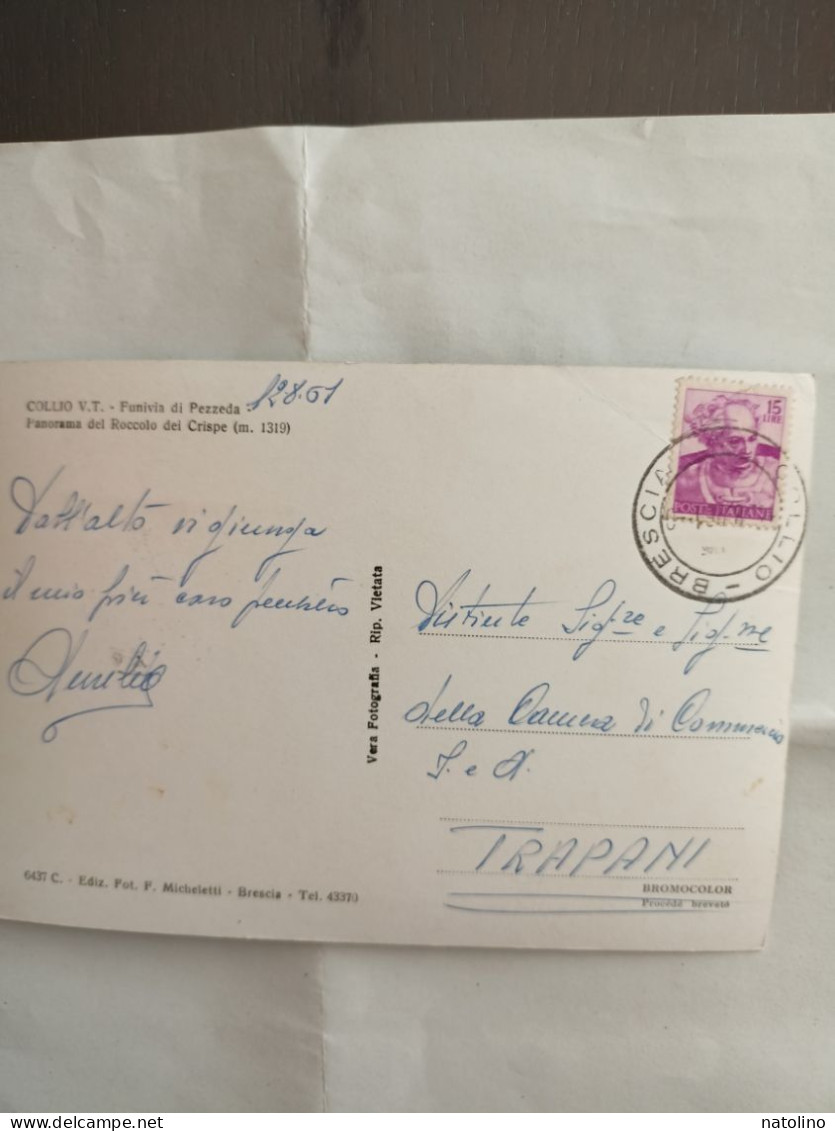 COLLIO V.T. - Funivia di Pezzeda 12.8.61
Panorama del Roccolo dei Crispe (m. 1319)
Dall'alto vi giunga
il mio più caro pensiero
Aurelio
6437 C. - Ediz. Fot. F. Micheletti - Brescia - Tel. 43370
Vera Fotografia - Rip. Vietata
15
LIRE
POSTE ITALIANE
COLLIO - BRESCIA
Distinte Sig.re e Sig.ne
della Camera di Commercio
I. e A.
TRAPANI
BROMOCOLOR
Procédé breveté
natolino